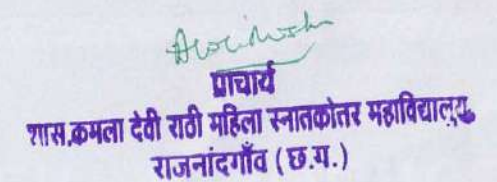 प्राचार्य
शास.कमला देवी राठी महिला स्नातकोतर महाविद्यालय,
राजनांदगाँव (छ.ग.)